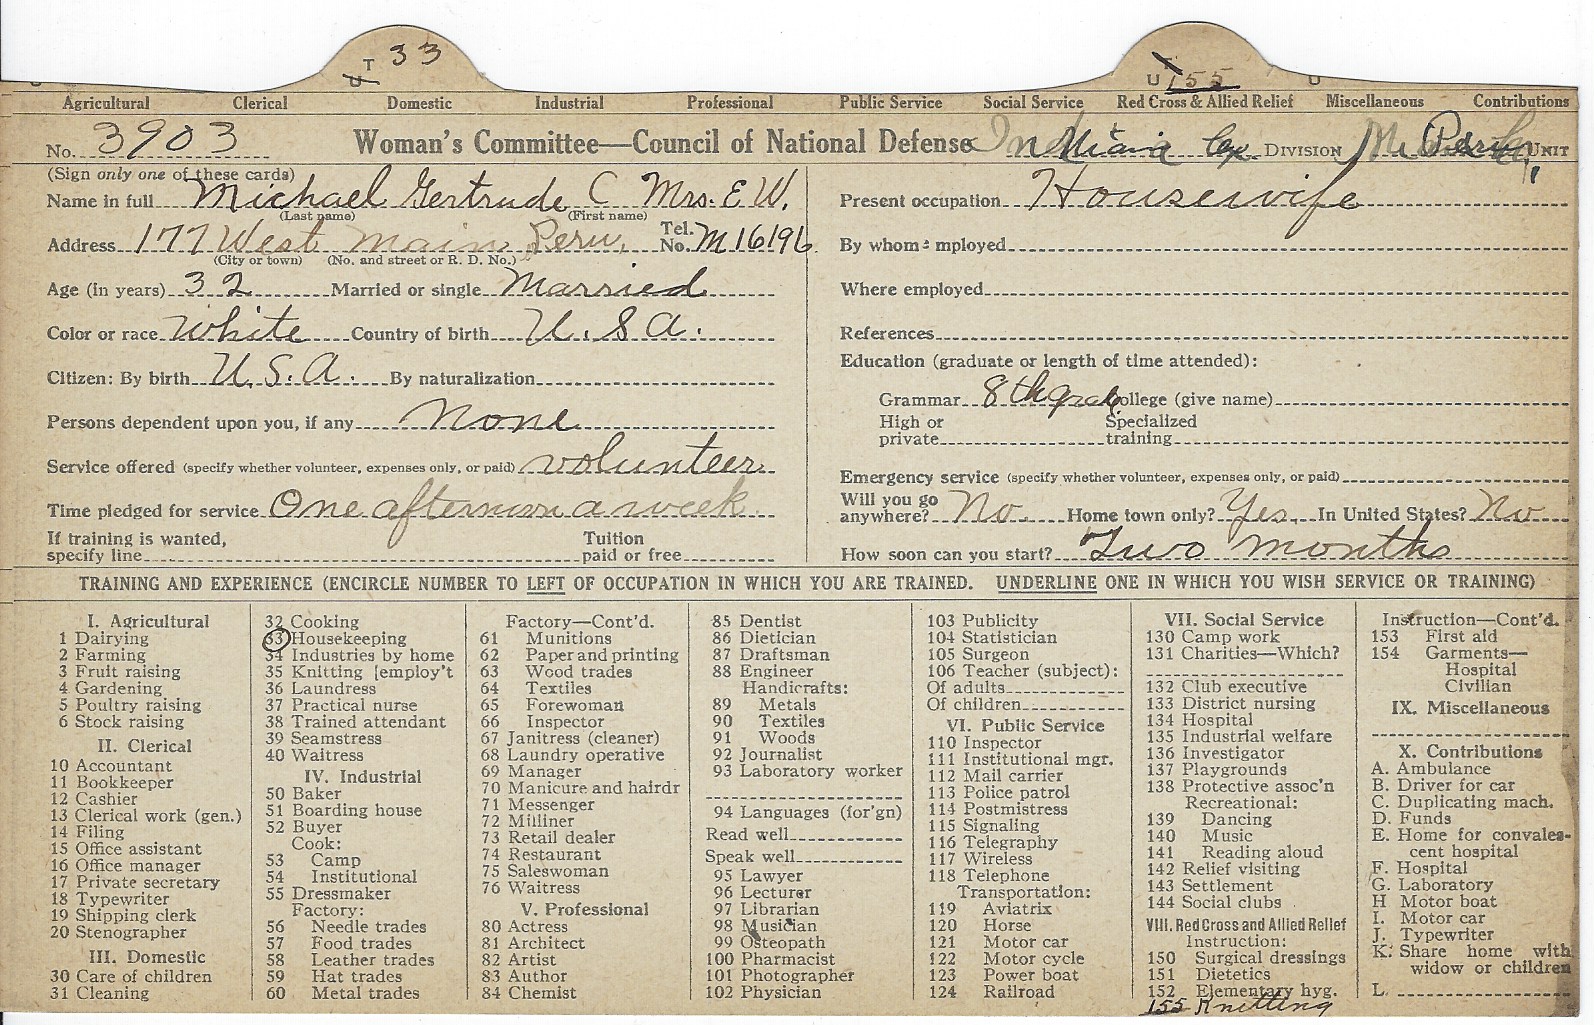 T 33
U
T
U 155
U
Agricultural Clerical Domestic Industrial Professional Public Service Social Service Red Cross & Allied Relief Miscellaneous Contributions
No. 3903 Woman's Committee—Council of National Defense Indiana Miami Co. DIVISION Peru UNIT
(Sign only one of these cards)
Name in full Michael Gertrude C Mrs. E W.
(Last name) (First name)
Address 177 West Main Peru, Tel. No. M16196
(City or town) (No. and street or R. D. No.)
Age (in years) 32 Married or single Married
Color or race White Country of birth U.S.A.
Citizen: By birth U.S.A. By naturalization
Persons dependent upon you, if any None
Service offered (specify whether volunteer, expenses only, or paid) volunteer
Time pledged for service One afternoon a week
If training is wanted, specify line Tuition paid or free
Present occupation Housewife
By whom employed
Where employed
References
Education (graduate or length of time attended):
Grammar 8th grade College (give name)
High or private Specialized training
Emergency service (specify whether volunteer, expenses only, or paid)
Will you go anywhere? No Home town only? Yes In United States? No
How soon can you start? Two months
TRAINING AND EXPERIENCE (ENCIRCLE NUMBER TO LEFT OF OCCUPATION IN WHICH YOU ARE TRAINED. UNDERLINE ONE IN WHICH YOU WISH SERVICE OR TRAINING)
I. Agricultural
1 Dairying
2 Farming
3 Fruit raising
4 Gardening
5 Poultry raising
6 Stock raising
II. Clerical
10 Accountant
11 Bookkeeper
12 Cashier
13 Clerical work (gen.)
14 Filing
15 Office assistant
16 Office manager
17 Private secretary
18 Typewriter
19 Shipping clerk
20 Stenographer
III. Domestic
30 Care of children
31 Cleaning
32 Cooking
33 Housekeeping
34 Industries by home
35 Knitting [employ't
36 Laundress
37 Practical nurse
38 Trained attendant
39 Seamstress
40 Waitress
IV. Industrial
50 Baker
51 Boarding house
52 Buyer
Cook:
53 Camp
54 Institutional
55 Dressmaker
Factory:
56 Needle trades
57 Food trades
58 Leather trades
59 Hat trades
60 Metal trades
Factory—Cont'd.
61 Munitions
62 Paper and printing
63 Wood trades
64 Textiles
65 Forewoman
66 Inspector
67 Janitress (cleaner)
68 Laundry operative
69 Manager
70 Manicure and hairdr
71 Messenger
72 Milliner
73 Retail dealer
74 Restaurant
75 Saleswoman
76 Waitress
V. Professional
80 Actress
81 Architect
82 Artist
83 Author
84 Chemist
85 Dentist
86 Dietician
87 Draftsman
88 Engineer
Handicrafts:
89 Metals
90 Textiles
91 Woods
92 Journalist
93 Laboratory worker
94 Languages (for'gn)
Read well
Speak well
95 Lawyer
96 Lecturer
97 Librarian
98 Musician
99 Osteopath
100 Pharmacist
101 Photographer
102 Physician
103 Publicity
104 Statistician
105 Surgeon
106 Teacher (subject):
Of adults
Of children
VI. Public Service
110 Inspector
111 Institutional mgr.
112 Mail carrier
113 Police patrol
114 Postmistress
115 Signaling
116 Telegraphy
117 Wireless
118 Telephone
Transportation:
119 Aviatrix
120 Horse
121 Motor car
122 Motor cycle
123 Power boat
124 Railroad
VII. Social Service
130 Camp work
131 Charities—Which?
132 Club executive
133 District nursing
134 Hospital
135 Industrial welfare
136 Investigator
137 Playgrounds
138 Protective assoc'n
Recreational:
139 Dancing
140 Music
141 Reading aloud
142 Relief visiting
143 Settlement
144 Social clubs
VIII. Red Cross and Allied Relief
Instruction:
150 Surgical dressings
151 Dietetics
152 Elementary hyg.
155 Knitting
Instruction—Cont'd.
153 First aid
154 Garments—
Hospital
Civilian
IX. Miscellaneous
X. Contributions
A. Ambulance
B. Driver for car
C. Duplicating mach.
D. Funds
E. Home for convales-
cent hospital
F. Hospital
G. Laboratory
H Motor boat
I. Motor car
J. Typewriter
K. Share home with
widow or children
L